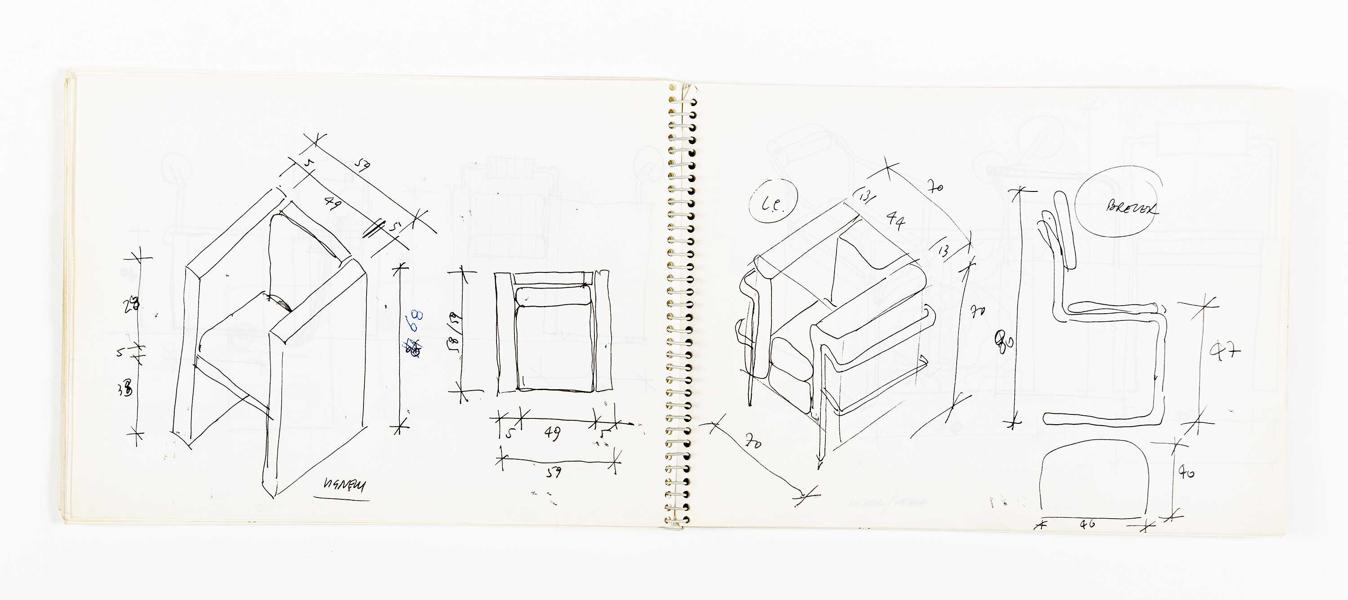 59
5
49
5
28
5
38
68
58/59
5
49
5
59
L.C.
70
13
44
13
70
70
BREUER
80
47
40
46